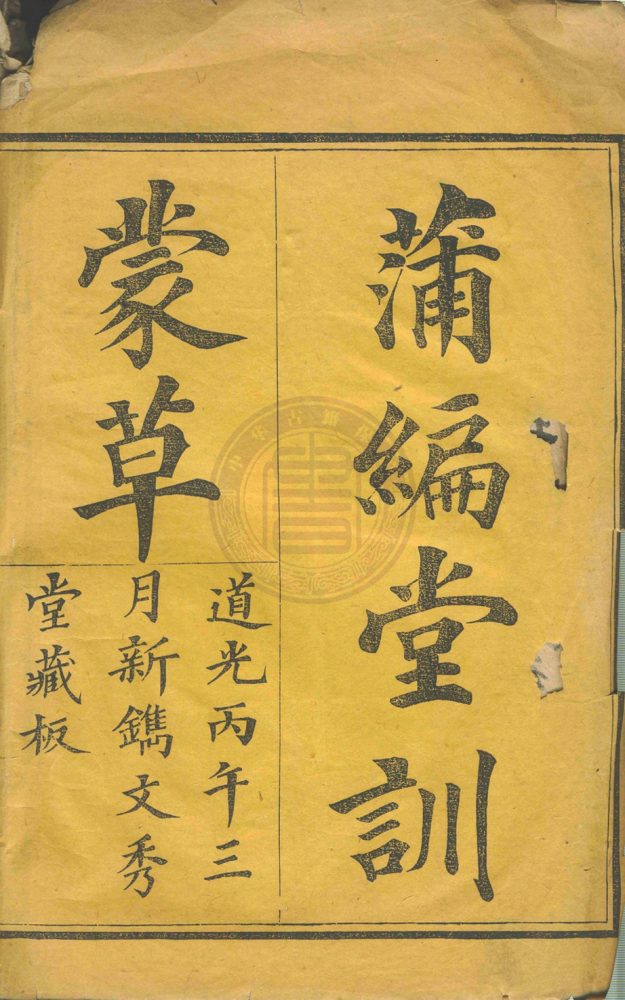 蒲編堂訓
蒙草
道光丙午三
月新鐫文秀
堂藏板